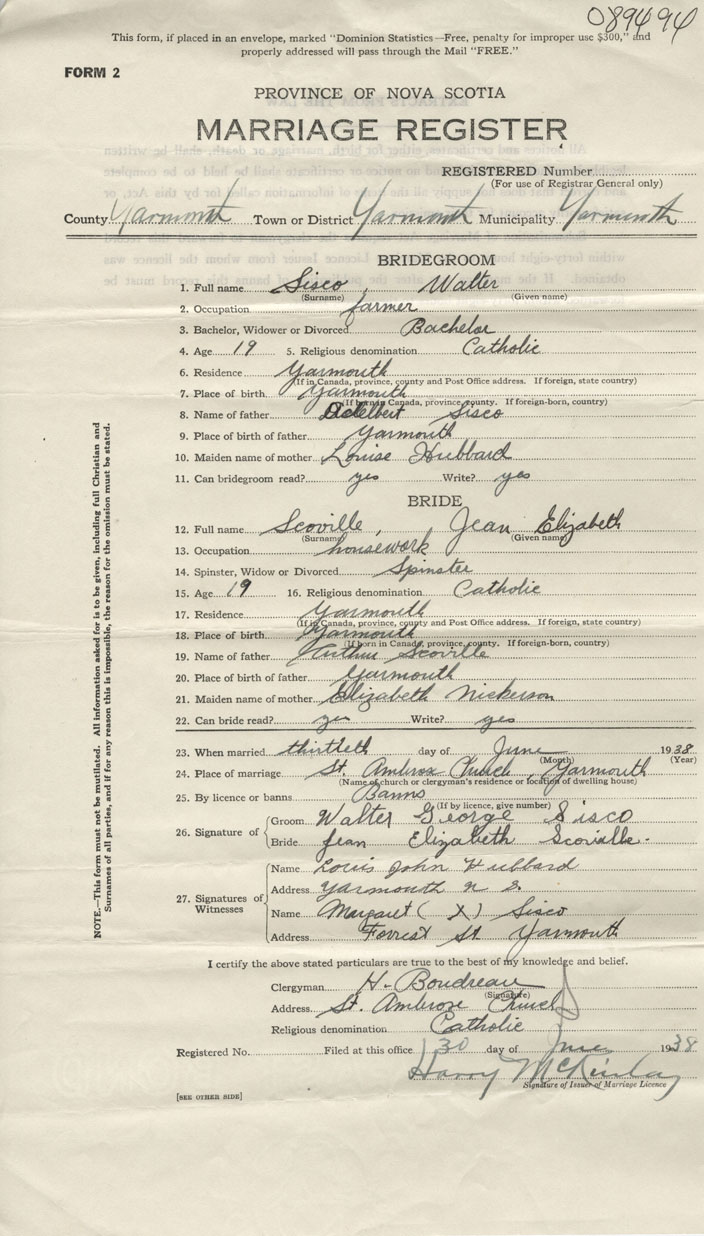 089494
This form, if placed in an envelope, marked "Dominion Statistics—Free, penalty for improper use $300," and
properly addressed will pass through the Mail "FREE."
FORM 2
PROVINCE OF NOVA SCOTIA
MARRIAGE REGISTER
REGISTERED Number
(For use of Registrar General only)
County Yarmouth Town or District Yarmouth Municipality Yarmouth
BRIDEGROOM
1. Full name Sisco, Walter
(Surname) (Given name)
2. Occupation farmer
3. Bachelor, Widower or Divorced Bachelor
4. Age 19 5. Religious denomination Catholic
6. Residence Yarmouth
(If in Canada, province, county and Post Office address. If foreign, state country)
7. Place of birth Yarmouth
(If born in Canada, province, county. If foreign-born, country)
8. Name of father Adelbert Sisco
9. Place of birth of father Yarmouth
10. Maiden name of mother Louise Hubbard
11. Can bridegroom read? yes Write? yes
BRIDE
12. Full name Scoville, Jean Elizabeth
(Surname) (Given name)
13. Occupation housework
14. Spinster, Widow or Divorced Spinster
15. Age 19 16. Religious denomination Catholic
17. Residence Yarmouth
(If in Canada, province, county and Post Office address. If foreign, state country)
18. Place of birth Yarmouth
(If born in Canada, province, county. If foreign-born, country)
19. Name of father Arthur Scoville
20. Place of birth of father Yarmouth
21. Maiden name of mother Elizabeth Nickerson
22. Can bride read? yes Write? yes
23. When married thirtieth day of June 1938
(Month) (Year)
24. Place of marriage St. Ambrose Church, Yarmouth
(Name of church or clergyman's residence or location of dwelling house)
25. By licence or banns Banns
(If by licence, give number)
26. Signature of Groom Walter George Sisco
Bride Jean Elizabeth Scoville.
27. Signatures of Witnesses
Name Louis John Hubbard
Address Yarmouth n s.
Name Margaret (X) Sisco
Address Forrest St. Yarmouth
I certify the above stated particulars are true to the best of my knowledge and belief.
Clergyman H. Boudreau
(Signature)
Address St. Ambrose Church
Religious denomination Catholic
Registered No. Filed at this office 30 day of June 1938
Harry McKinlay
Signature of Issuer of Marriage Licence
[SEE OTHER SIDE]
NOTE.—This form must not be mutilated. All information asked for is to be given, including full Christian and
Surnames of all parties, and if for any reason this is impossible, the reason for the omission must be stated.